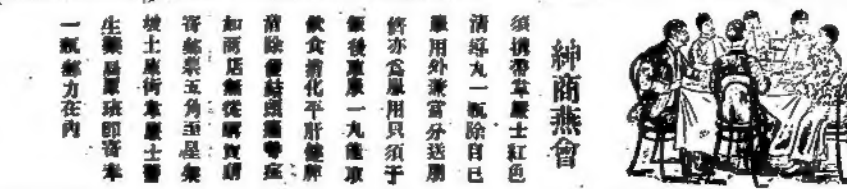 紳商燕會
須攜帶韋廉士紅色
清導丸一瓶除自己
服用外兼當分送朋
儕亦合服用只須于
飯後服一丸能取
飲食消化平肝健脾
清除便結頭痛等症
如商店無從購買請
寄郵票五角至星架
坡土庫街韋廉士醫
生藥局原班郵寄奉
一瓶郵力在內